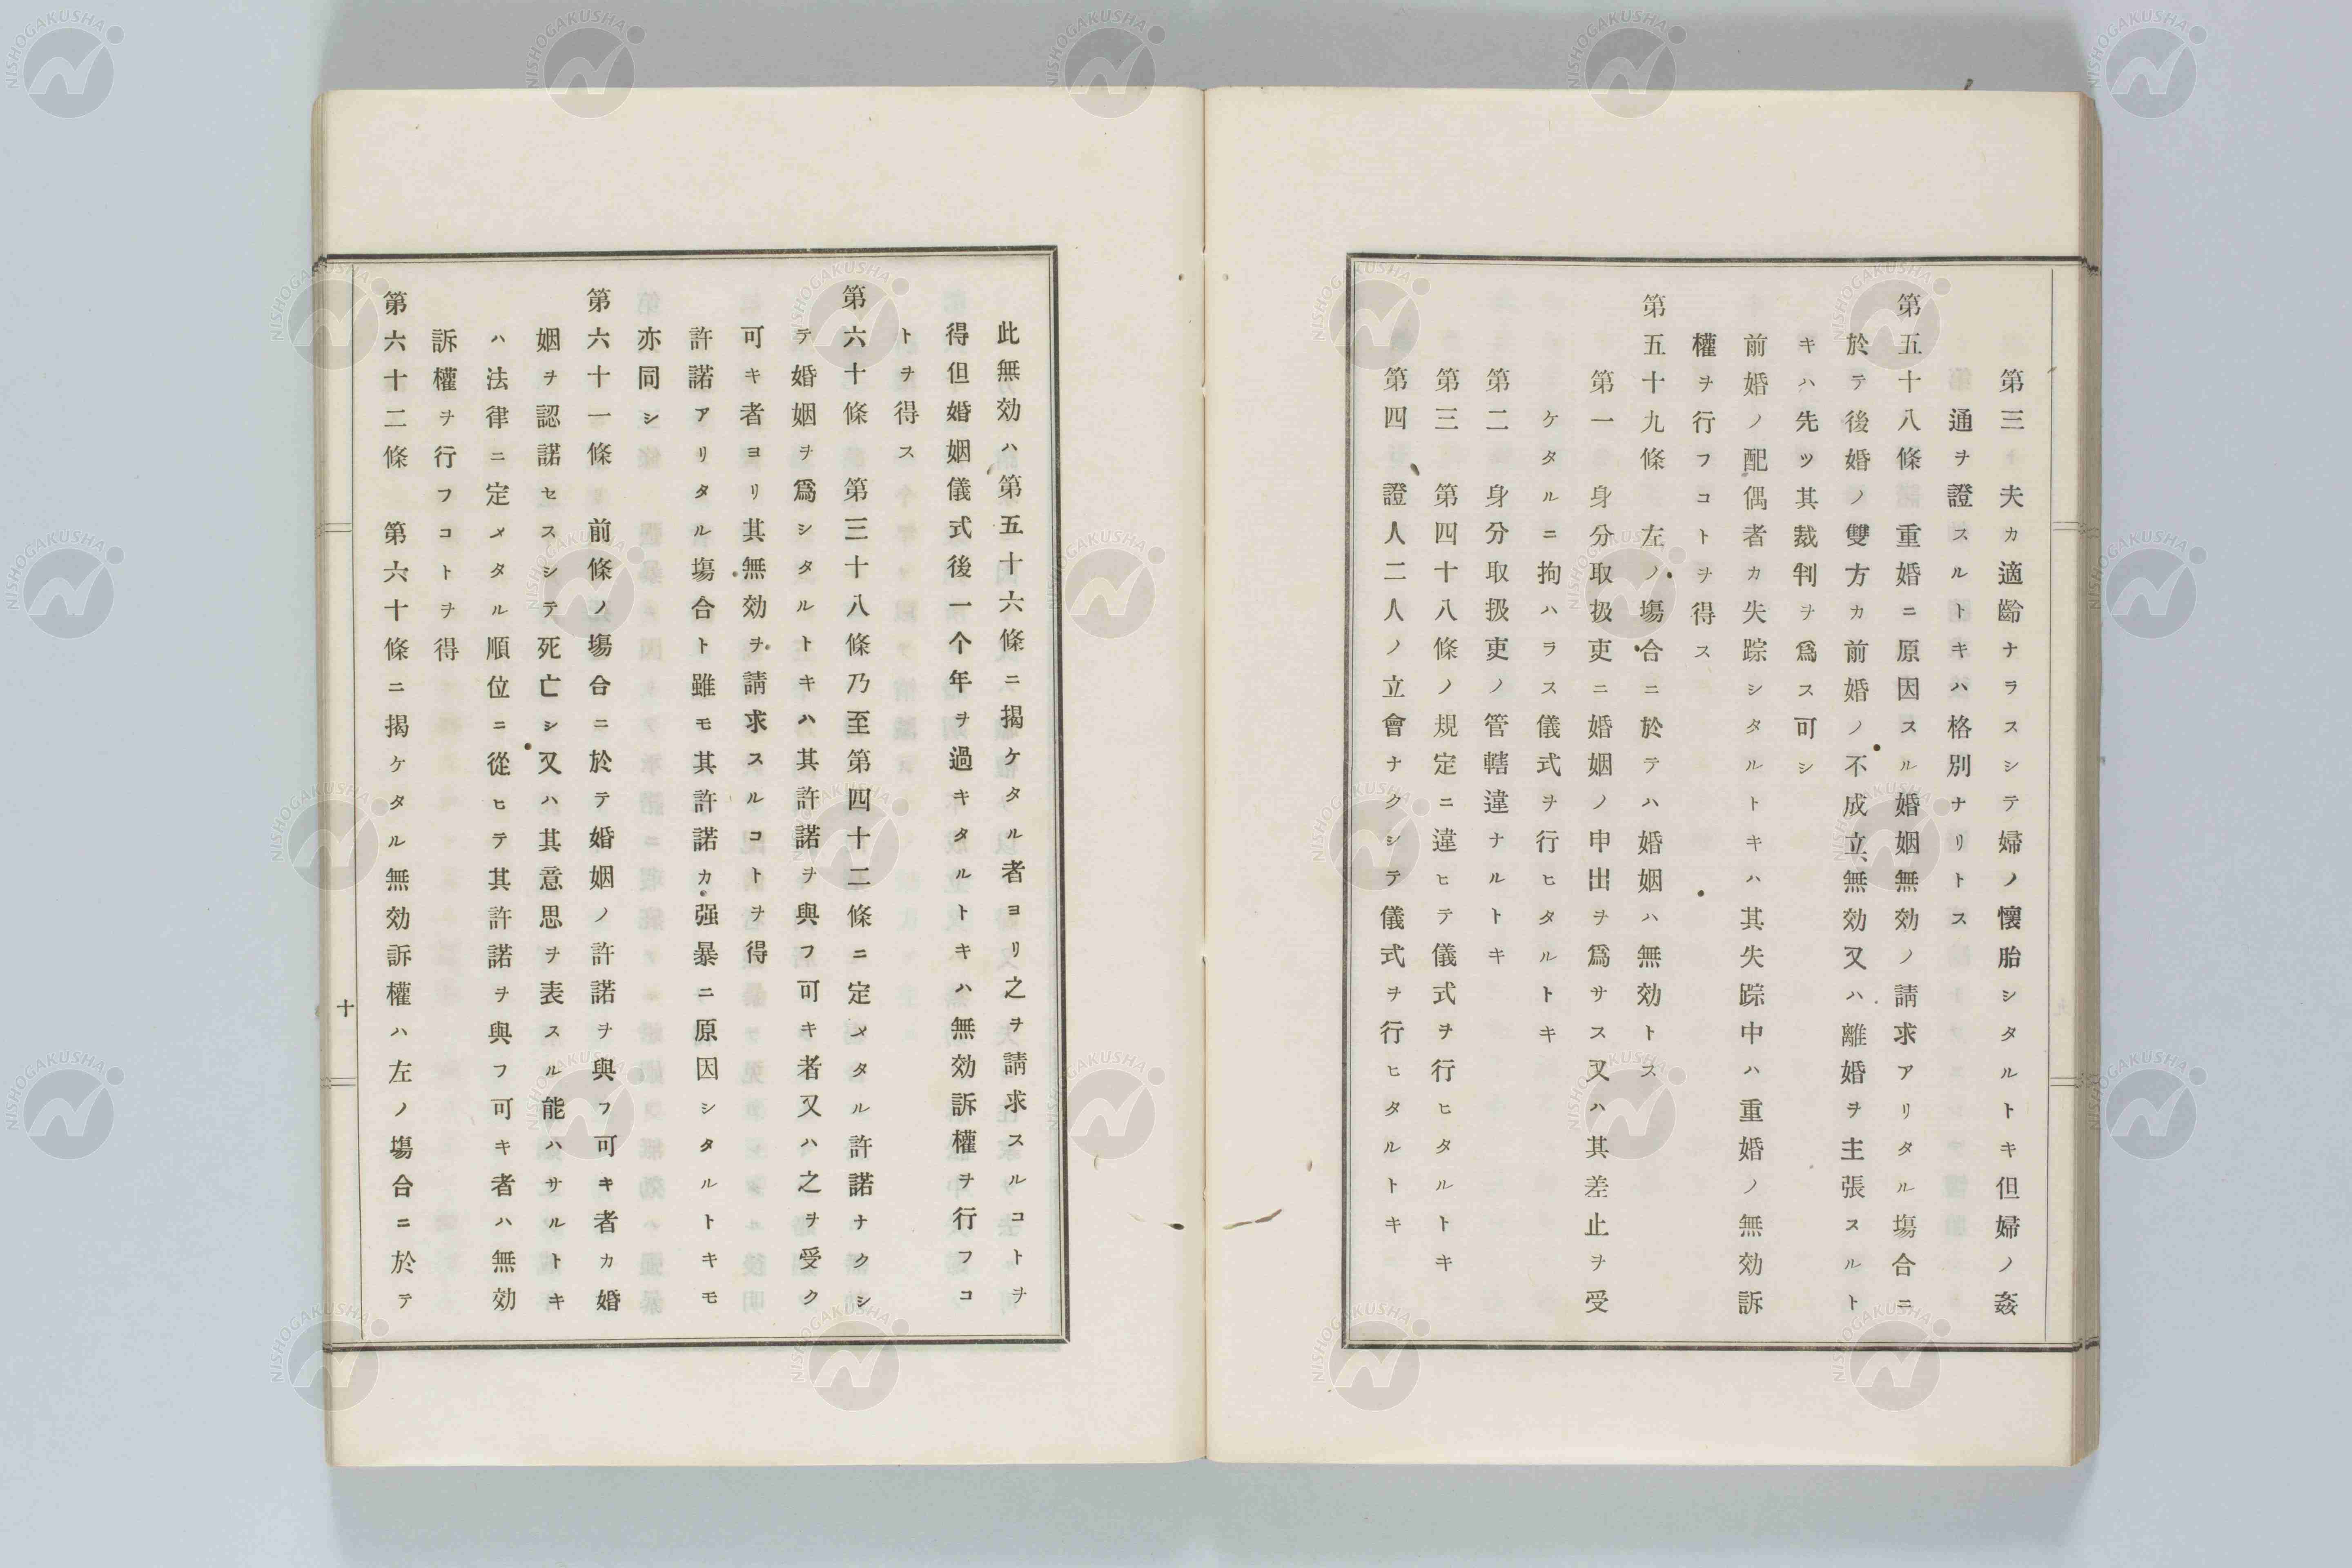 第三　夫カ適齡ナラスシテ婦ノ懷胎シタルトキ但婦ノ姦
通ヲ證スルトキハ格別ナリトス
第五十八條　重婚ニ原因スル婚姻無効ノ請求アリタル塲合ニ
於テ後婚ノ雙方カ前婚ノ不成立、無効又ハ離婚ヲ主張スルト
キハ先ツ其裁判ヲ爲ス可シ
前婚ノ配偶者カ失踪シタルトキハ其失踪中ハ重婚ノ無効訴
權ヲ行フコトヲ得ス
第五十九條　左ノ塲合ニ於テハ婚姻ハ無効トス
第一　身分取扱吏ニ婚姻ノ申出ヲ爲サス又ハ其差止ヲ受
ケタルニ拘ハラス儀式ヲ行ヒタルトキ
第二　身分取扱吏ノ管轄違ナルトキ
第三　第四十八條ノ規定ニ違ヒテ儀式ヲ行ヒタルトキ
第四　證人二人ノ立會ナクシテ儀式ヲ行ヒタルトキ
此無効ハ第五十六條ニ揭ケタル者ヨリ之ヲ請求スルコトヲ
得但婚姻儀式後一个年ヲ過キタルトキハ無効訴權ヲ行フコ
トヲ得ス
第六十條　第三十八條乃至第四十二條ニ定メタル許諾ナクシ
テ婚姻ヲ爲シタルトキハ其許諾ヲ與フ可キ者又ハ之ヲ受ク
可キ者ヨリ其無効ヲ請求スルコトヲ得
許諾アリタル塲合ト雖モ其許諾カ强暴ニ原因シタルトキモ
亦同シ
第六十一條　前條ノ塲合ニ於テ婚姻ノ許諾ヲ與フ可キ者カ婚
姻ヲ認諾セスシテ死亡シ又ハ其意思ヲ表スル能ハサルトキ
ハ法律ニ定メタル順位ニ從ヒテ其許諾ヲ與フ可キ者ハ無効
訴權ヲ行フコトヲ得
第六十二條　第六十條ニ揭ケタル無効訴權ハ左ノ塲合ニ於テ
十
NISHOGAKUSHA